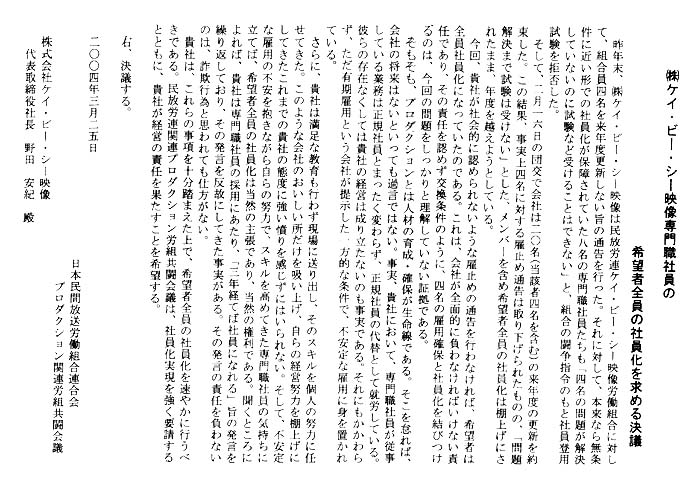 ㈱ケイ・ビー・シー映像専門職社員の
希望者全員の社員化を求める決議
昨年末、㈱ケイ・ビー・シー映像は民放労連ケイ・ビー・シー映像労働組合に対し
て、組合員四名を来年度更新しない旨の通告を行った。それに対して、本来なら無条
件に近い形での社員化が保障されていた八名の専門職社員たちも「四名の問題が解決
していないのに試験など受けることはできない」と、組合の闘争指令のもと社員登用
試験を拒否した。
そして、二月一六日の団交で会社は二〇名（当該者四名を含む）の来年度の更新を約
束した。この結果、事実上四名に対する雇止め通告は取り下げられたものの、「問題
解決まで試験は受けない」とした、メンバーを含め希望者全員の社員化は棚上げにさ
れたまま、年度を越えようとしている。
今回、貴社が社会的に認められないような雇止めの通告を行わなければ、希望者は
全員社員化になっていたのである。これは、会社が全面的に負わなければいけない責
任であり、その責任を認めず交換条件のように、四名の雇用確保と社員化を結びつけ
るのは、今回の問題をしっかりと理解していない証拠である。
そもそも、プロダクションとは人材の育成・確保が生命線である。そこを怠れば、
会社の将来はないといっても過言ではない。事実、貴社において、専門職社員が従事
している業務は正規社員とまったく変わらず、正規社員の代替として就労している。
彼らの存在なくしては貴社の経営は成り立たないのも事実である。それにもかかわら
ず、ただ有期雇用という会社が提示した一方的な条件で、不安定な雇用に身を置かれ
ている。
さらに、貴社は満足な教育も行わず現場に送り出し、そのスキルを個人の努力に任
せてきた。このような会社のおいしい所だけを吸い上げ、自らの経営努力を棚上げに
してきたこれまでの貴社の態度に強い憤りを感じずにはいられない。そして、不安定
な雇用の不安を抱きながら自らの努力で、スキルを高めてきた専門職社員の気持ちに
立てば、希望者全員の社員化は当然の主張であり、当然の権利である。聞くところに
よれば、貴社は専門職社員の採用にあたり、「三年経てば社員になれる」旨の発言を
繰り返しており、その発言を反故にしてきた事実がある。その発言の責任を負わない
のは、詐欺行為と思われても仕方がない。
貴社は、これらの事項を十分踏まえた上で、希望者全員の社員化を速やかに行うべ
きである。民放労連関連プロダクション労組共闘会議は、社員化実現を強く要請する
とともに、貴社が経営の責任を果たすことを希望する。
右、決議する。
二〇〇四年三月二五日
日本民間放送労働組合連合会
プロダクション関連労組共闘会議
株式会社ケイ・ビー・シー映像
代表取締役社長　野田　安紀　殿